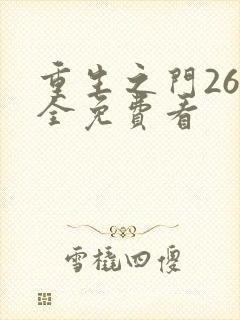 重生之門26
全免費看
雪橇四傻